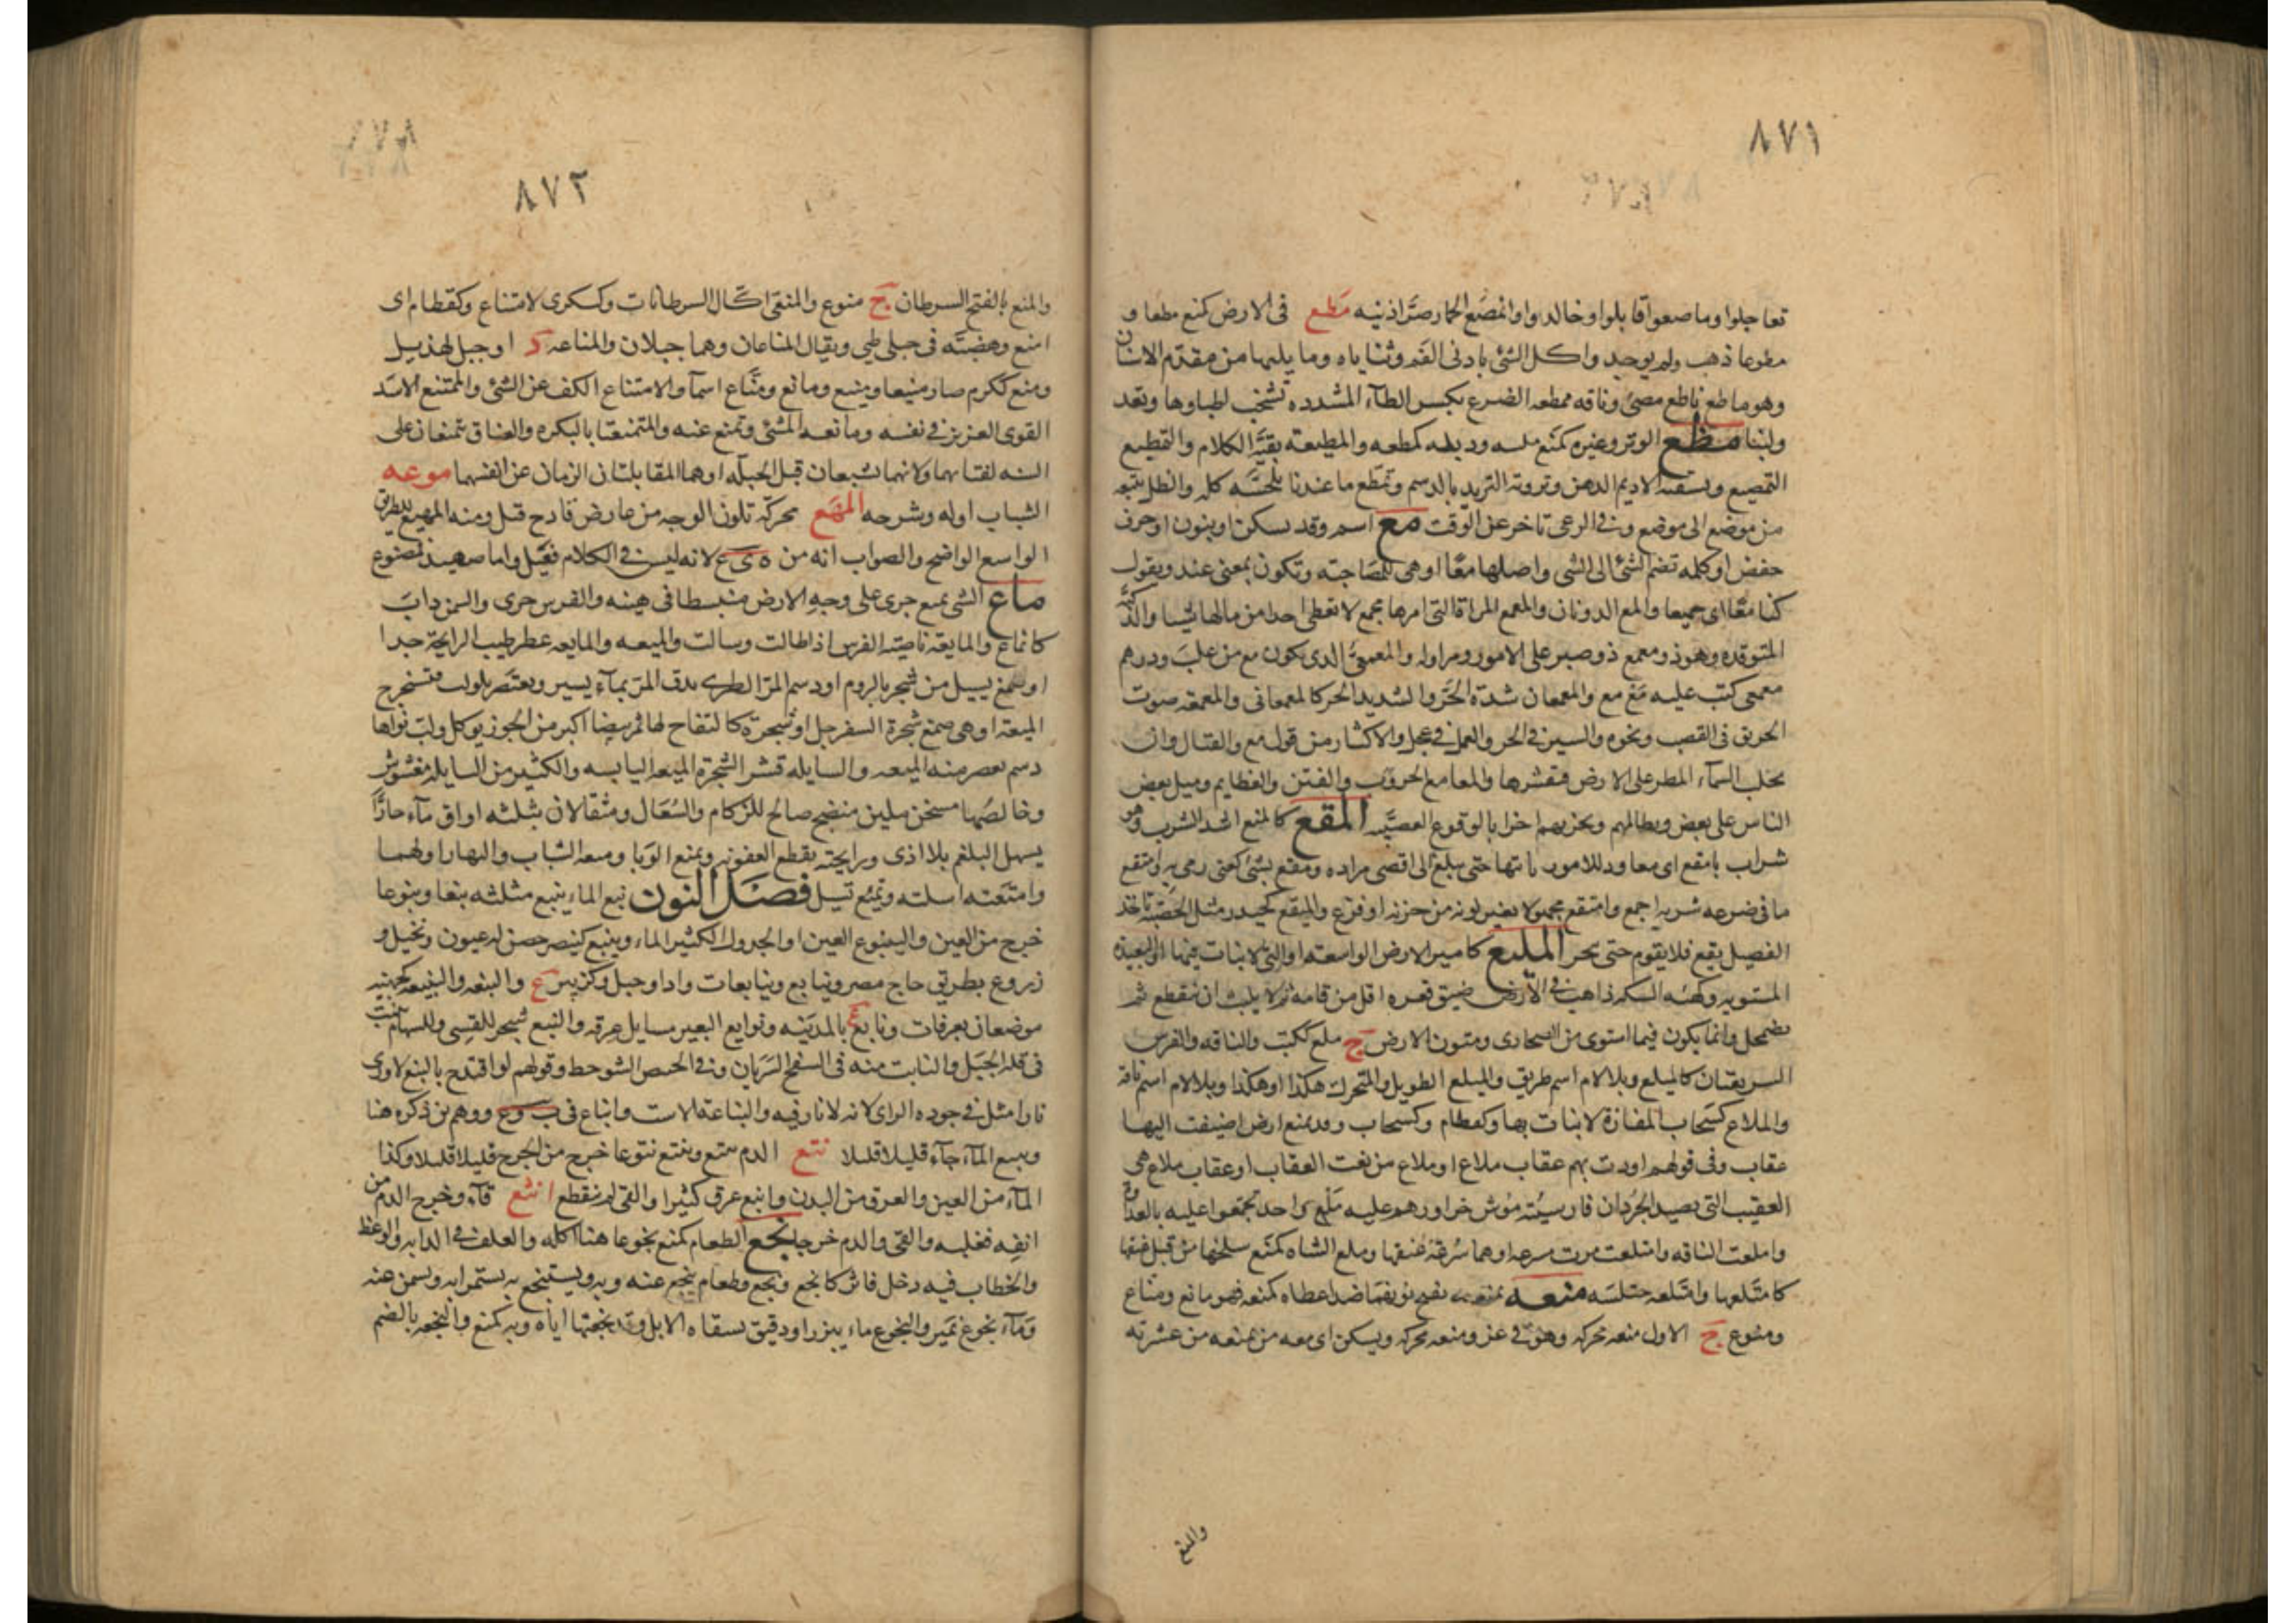 ٨٧١
تعاجلوا وماصعوا قابلوا وخالدوا وانمصع الحمار صر اذنيه مطع فى الارض كمنع مطعا و
مطوعا ذهب ولم يوجد واكل الشئ بادنى الفم وثناياه وما يليها من مقدم الاسنان
وهو ماطع ناطع مصئ وناقه ممطعه الضرع بكسر الطآء المشدده تشخب اطباوها وتغد
ولبنا مظع الوتر وغيره كمنع ملسه وذبله كمظعه والمظيعة بقية الكلام والتمظيع
التمصيع وتسقية الاديم الدهن وتروية الثريد بالدسم وتمظع ما عندنا تلحسه كله والظل تتبعه
من موضع الى موضع وفى الرعى تاخر عن الوقت مع اسم وقد يسكن او ينون او حرف
خفض او كلمه تضم الشئ الى الشى واصلها معًا او هى للمصاحبة وتكون بمعنى عند ويقول
كنا معًا اى جميعا والمع الذوبان والمعمع المراة التى امرها مجمع لا تعطى احدا من مالها شيا والذكية
المتوقده وهو ذو معمع ذو صبر على الامور ومزاوله والمعمعى الذى يكون مع من غلب ودرهم
معمعى كتب عليه مع مع والمعمعان شدة الحر والشديد الحر كالمعمعانى والمعمعة صوت
الحريق فى القصب ونحوه والسير فى الحر والعمل فى عجل والاكثار من قول مع والقتال وان
تحلب السمآء المطر على الارض فتقشرها والمعامع الحروب والفتن والعظايم وميل بعض
الناس على بعض وتظالمهم وتحزبهم احزابا لوقوع العصبية المقع كالمنع اشد الشرب وهو
شراب بامقع اى معاود للامور ياتيها حتى يبلغ الى اقصى مراده ومقع بشئ كعنى رمى به وامتقع
ما فى ضرعه شربه اجمع وامتقع مجهولا تغير لونه من حزن او فزع والميقع كحيدر مثل الحصبة تاخذ
الفصيل يقع فلا يقوم حتى ينحر المليع كامير الارض الواسعة او التى لا نبات فيها او البعيدة
المستويه وكهئه السكه ذاهب فى الارض ضيق قعره اقل من قامه ثم لا يلبث ان ينقطع ثم
يضمحل وانما يكون فيما استوى من الصحارى ومتون الارض ج ملع ككتب والناقه والفرس
السريعتان كالميلع وبلا لام اسم طريق والميلع الطويل والمتحرك هكذا او هكذا وبلا لام اسم ناقة
والملاع كسحاب المفازة لا نبات بها وكقطام وكسحاب وقد يمنع ارض اضيفت اليها
عقاب وفى قولهم اودت بهم عقاب ملاع او ملاع من نعت العقاب او عقاب ملاع هى
العقيب التى تصيد الجرذان فارسيته موش خوار وهم عليه ملع واحد تجمعوا عليه بالعداوة
واملعت الناقه وامتلعت مرت مسرعه او هما سرعة عنقها وملع الشاه كمنع سلخها من قبل عنقها
كامتلعها وامتلعه اختلسه منعه يمنعه بفتح نونهما ضد اعطاه كمنعه فهو مانع ومناع
ومنوع ج الاول منعه محركه وهو فى عز ومنعه محركه ويسكن اى معه من يمنعه من عشيرته
والمنع
٨٧٢
والمنع بالفتح السرطان ج منوع والمنعى اكال السرطانات وكسكرى الامتناع وكقطام اى
امنع وهضبة فى جبلى طى ويقال المناعان وهما جبلان والمناعه د او جبل لهذيل
ومنع ككرم صار منيعا ومنيع ومانع ومناع اسمآ والامتناع الكف عن الشئ والممتنع الاسد
القوى العزيز فى نفسه ومانعه الشئ وتمنع عنه والمتمنعتا بالبكره والعناق تتمنعان على
السنه لفتائهما ولانهما تشبعان قبل الجلة او هما المقابلتان الزمان عن انفسهما موعه
الشباب اوله وشرخه المهع محركة تلون الوجه من عارض فادح قيل ومنه المهيع للطريق
الواسع الواضح والصواب انه من ه ى ع لانه ليس فى الكلام فعيل واما صهيد فمصنوع
ماع الشى يميع جرى على وجه الارض منبسطا فى هينه والفرس جرى والسمن ذاب
كانماع والمايعة ناصية الفرس اذا طالت وسالت والميعه والمايعه عطر طيب الرايحة جدا
او صمغ يسيل من شجر بالروم او دسم المر الطرى يدق المر بمآء يسير ويعتصر بلولب فتستخرج
الميعة او هى صمغ شجرة السفرجل او شجرة كالتفاح لها ثمر بيضا اكبر من الجوز يوكل ولب نواها
دسم يعصر منه الميعه والسايله قشر الشجرة الميعه اليابسه والكثير من السايله مغشوش
وخالصها مسخن ملين منضج صالح للزكام والسعال ومثقالان بثلثه اواق مآء حارًا
يسهل البلغم بلا اذى ورايحته يقطع العفونه ويمنع الوبا وميعه الشباب والنهار اولهما
وامتعته اسلته وتميع تسيل فصل النون نبع الماء ينبع مثلثه نبعا ونبوعا
خرج من العين والينبوع العين او الجدول الكثير الماء وينبع كينصر حصن له عيون ونخيل و
زروع بطريق حاج مصر ونبايع ونبايعات واد او جبل وكزبير ع والنبعه والنبيعه كجهينه
موضعان بعرفات ونابع ع بالمدينه ونوابع البعير مسايل عرقه والنبع شجر للقسى وللسهام ينبت
فى قلة الجبل والنابت منه فى السفح الشريان وفى الحضيض الشوحط وقولهم لو اقتدح بالنبع لاورى
نارا مثل فى جوده الراى لانه لا نار فيه والنباعة الاست وانباع فى ب و ع ووهم من ذكره هنا
ونبع المآء جآء قليلا قليلا نتع الدم ينتع وينتع نتوعا خرج من الجرح قليلا قليلا وكذا
المآء من العين والعرق من البدن وانتع عرق كثيرا والقى لم ينقطع انثع قآء وخرج الدم من
انفه فغلبه والقى والدم خرجا نجع الطعام كمنع نجوعا هنا اكله والعلف فى الدابه والوعظ
والخطاب فيه دخل فاثر كانجع ونجع وطعام ينجع عنه وبه ويستنجع به يستمرا به ويسمن عنه
ومآء نجوع نمير والنجوع ماء ببزر او دقيق يسقاه الابل وقد نجعتها اياه وبه كمنع والنجعه بالضم